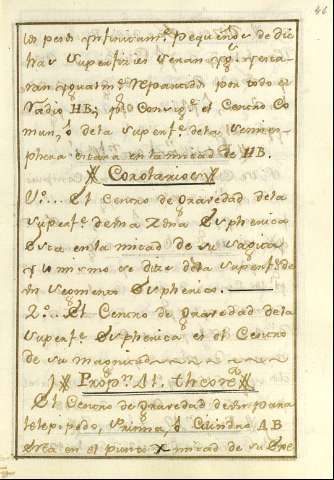 46
los pesos ynfinitam.te pequeños de di
chas superficies seran yg.s y esta
ran ygualm.te repartidos por todo el
radio HB; p.r consig.te el Centro Co
mun, o dela superf.e dela semies-
phera estara en la mitad de HB.
Corolarios
1.o... El Centro de Gravedad dela
superf.e de una Zona Espherica
esta en la mitad de su sagita
y lo mismo se dize dela superf.e de
un segmento Espherico.
2.o... El Centro de Gravedad dela
superf.e Espherica es el Centro
de su magnitud
Prop.n 41. theore.a
El Centro de Gravedad de un para
lelepipedo, Prisma, o Cilindro AB
esta en el punto X mitad de su Exe